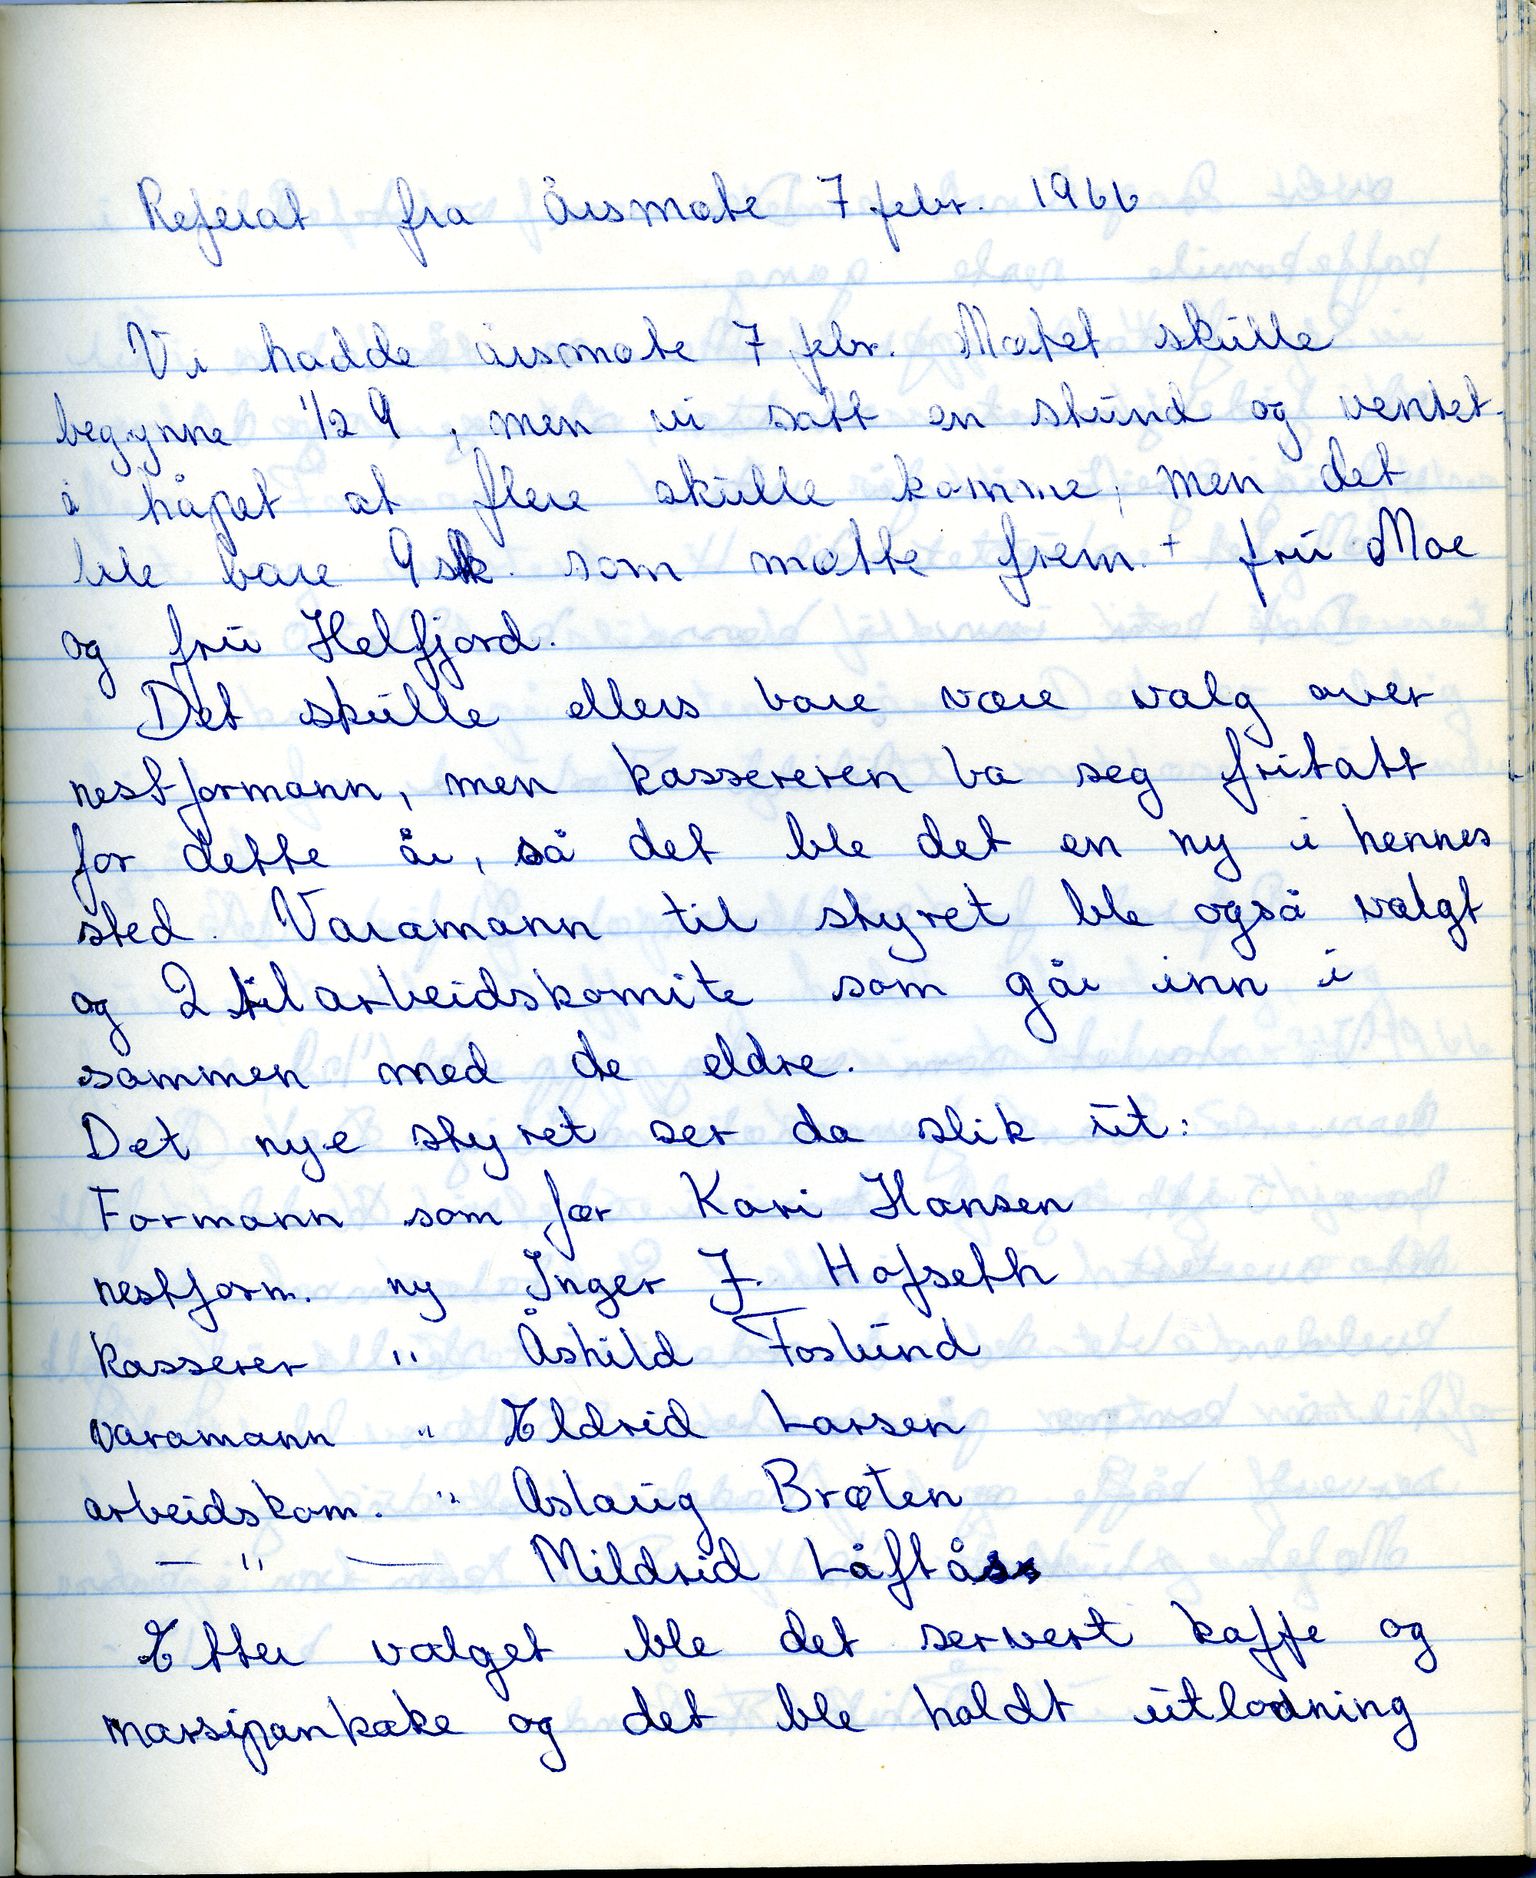 Referat fra Årsmøte 7 febr. 1966
Vi hadde årsmøte 7 febr. Møtet skulle
begynne 1/2 9, men vi satt en stund og ventet
i håpet at flere skulle komme, men det
ble bare 9 stk. som møtte frem. + fru Moe
og fru Helfjord.
Det skulle ellers bare være valg over
nestformann, men kassereren ba seg fritatt
for dette år, så det ble det en ny i hennes
sted. Varamann til styret ble også valgt
og 2 til arbeidskomite som går inn i
sammen med de eldre.
Det nye styret ser da slik ut:
Formann som før Kari Hansen
nestform. ny Inger J. Hofseth
kasserer " Åshild Foslund
varamann " Eldrid Larsen
arbeidskom. " Aslaug Bråten
— " — Mildrid Låftås
Etter valget ble det servert kaffe og
marsipankake og det ble holdt utlodning